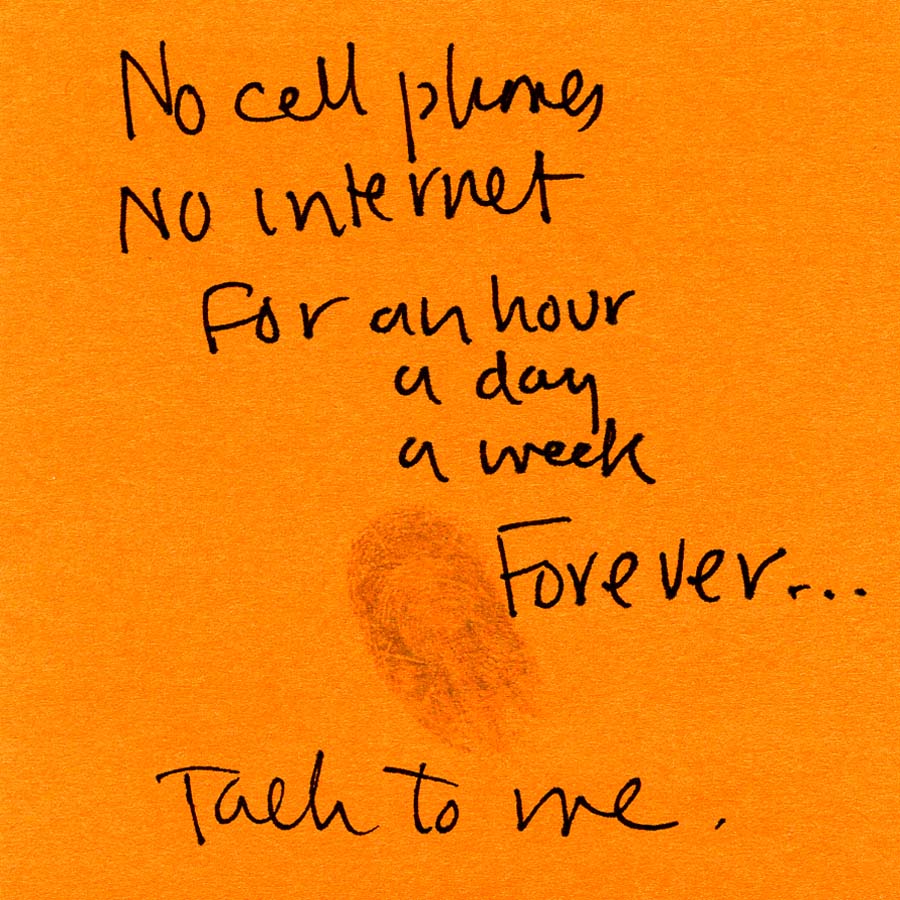 No cell phones
No internet
For an hour
a day
a week
Forever...
Talk to me.